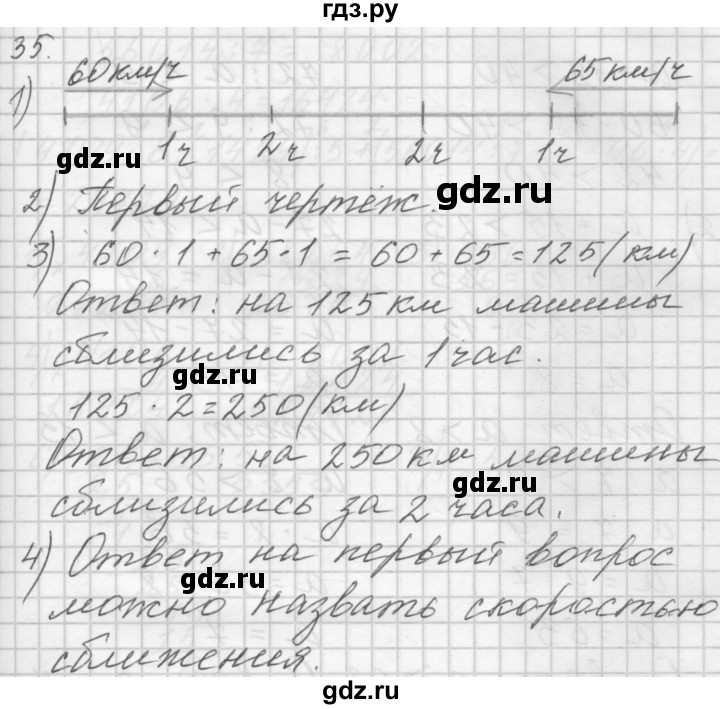 гдз.ру
35.
60 км/ч 65 км/ч
1)
1ч 2ч 2ч 1ч
gdz.ru
gdz.ru
2) Первый чертёж.
3) 60 · 1 + 65 · 1 = 60 + 65 = 125 (км)
Ответ: на 125 км машины
сблизились за 1 час.
gdz.ru
125 · 2 = 250 (км)
Ответ: на 250 км машины
gdz.ru
сблизились за 2 часа.
4) Ответ на первый вопрос
gdz.ru
можно назвать скоростью
сближения.
gdz.ru